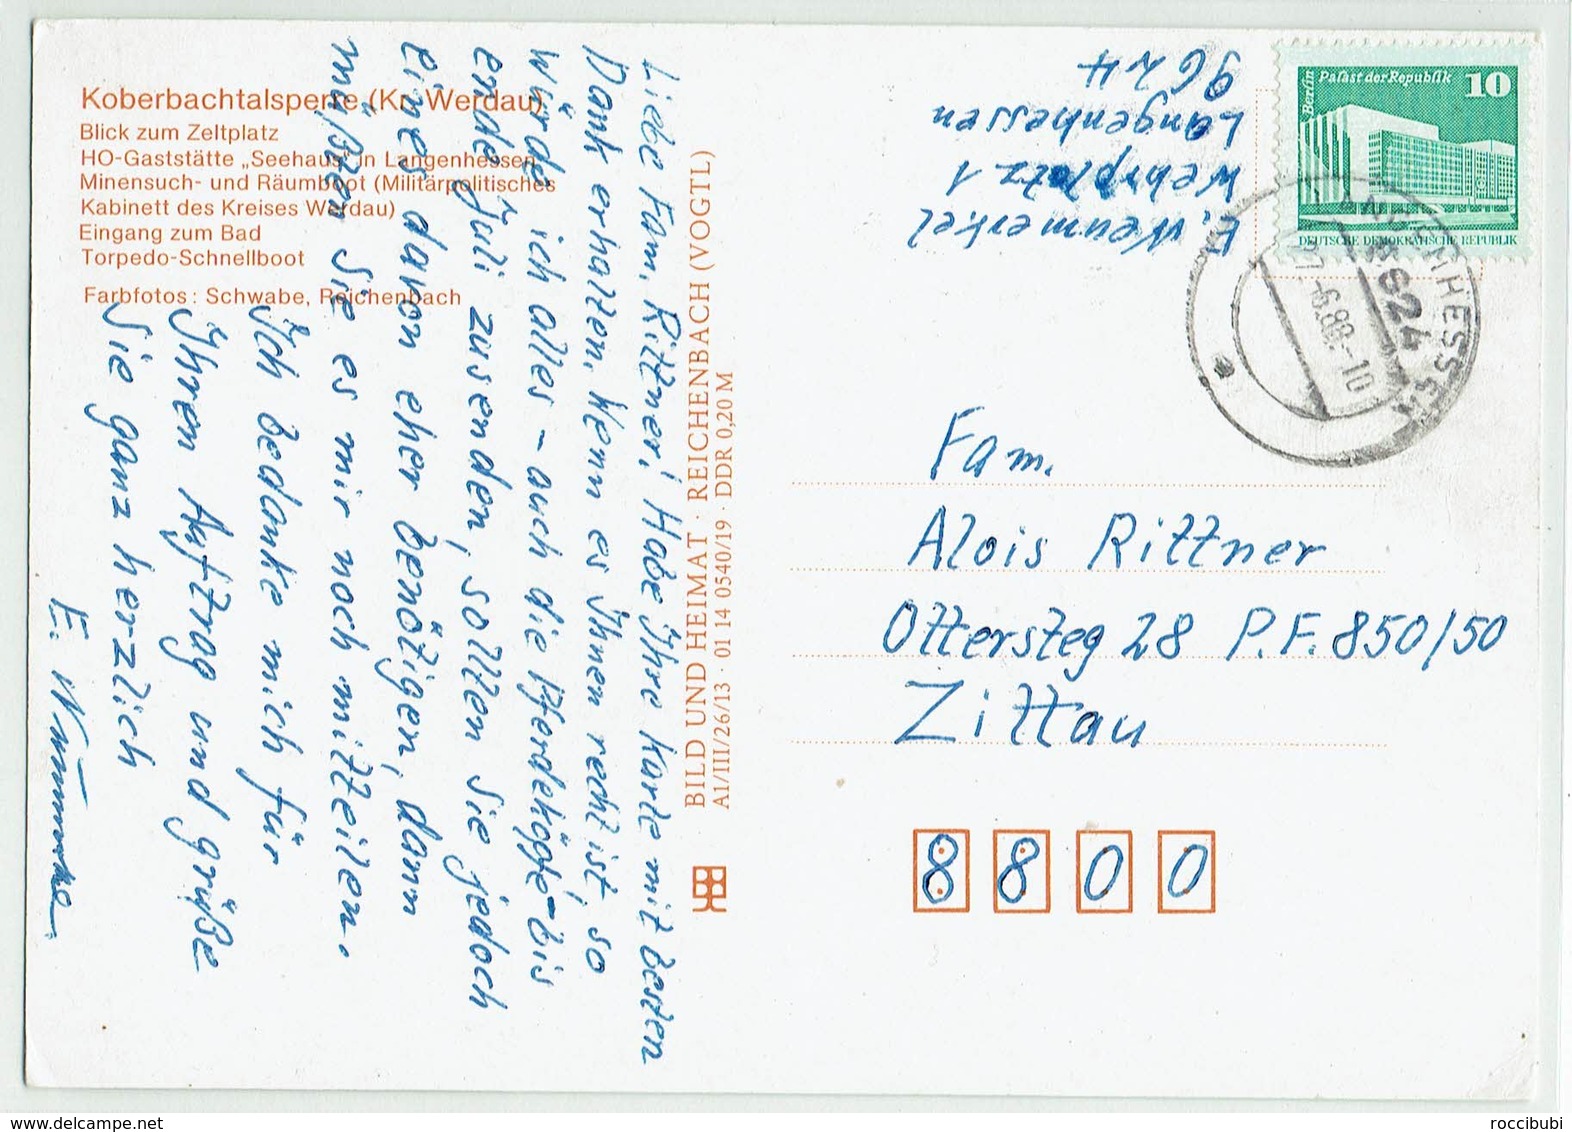 Koberbachtalsperre (Kr. Werdau)
Blick zum Zeltplatz
HO-Gaststätte „Seehaus" in Langenhessen
Minensuch- und Räumboot (Militärpolitisches
Kabinett des Kreises Werdau)
Eingang zum Bad
Torpedo-Schnellboot
Farbfotos: Schwabe, Reichenbach
Liebe Fam. Rittner! Habe Ihre Karte mit besten
Dank erhalten. Wenn es Ihnen recht ist, so
würde ich alles - auch die Pferdeköpfe - bis
Ende Juli zusenden, sollten Sie jedoch
eines davon eher benötigen, dann
müßten Sie es mir noch mitteilen.
Ich bedanke mich für
Ihren Auftrag und grüße
Sie ganz herzlich
E.
BILD UND HEIMAT · REICHENBACH (VOGTL)
A1/III/26/13 · 01 14 0540/19 · DDR 0,20 M
E.
Wehrplatz 1
Langenhessen
9624
Berlin
Palast der Republik 10
DEUTSCHE DEMOKRATISCHE REPUBLIK
LANGENHESSEN
9624
-6.88.-10
Fam.
Alois Rittner
Ottersteg 28 P.F. 850/50
Zittau
8800
roccibubi